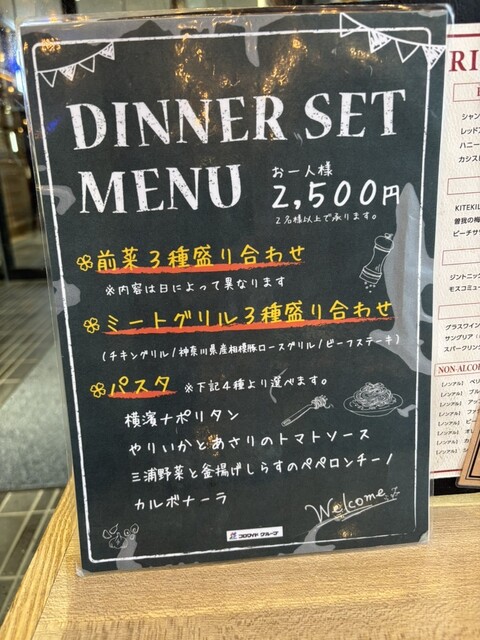 DINNER SET
MENU
お一人様
2,500円
2名様以上で承ります。
前菜3種盛り合わせ
※内容は日によって異なります
ミートグリル3種盛り合わせ
(チキングリル/神奈川県産相模豚ロースグリル/ビーフステーキ)
パスタ ※下記4種より選べます。
横濱ナポリタン
やりいかとあさりのトマトソース
三浦野菜と釜揚げしらすのペペロンチーノ
カルボナーラ
Welcome
コロワイド グループ
RI
シャン
レッド
ハニー
カシス
KITEKI
曽我の梅
ピーチサ
ジントニック
モスコミュ
グラスワイン
サングリア
スパークリン
NON-ALCO
[ノンアル]
[ノンアル]
[ノンアル]
[ノンアル]
[ノンアル]
[ノンアル]
[ノンアル]